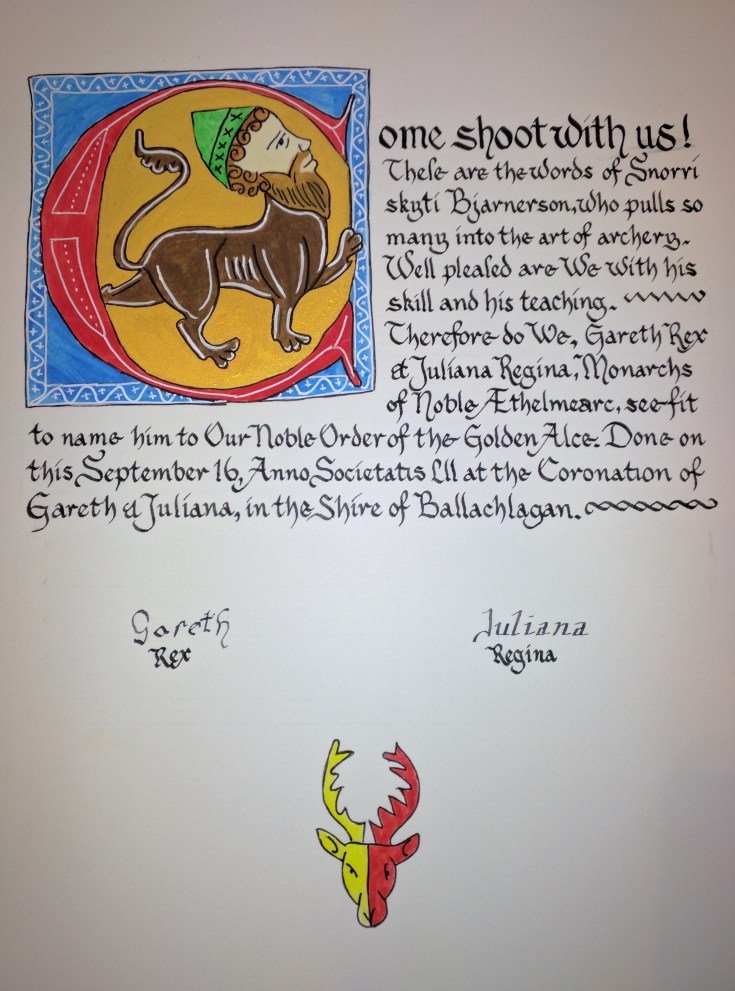 Come shoot with us!
These are the words of Snorri
skyti Bjarnerson, who pulls so
many into the art of archery.
Well pleased are We with his
skill and his teaching.
Therefore do We, Gareth Rex
et Juliana Regina, Monarchs
of Noble Æthelmearc, see fit
to name him to Our Noble Order of the Golden Alce. Done on
this September 16, Anno Societatis LII at the Coronation of
Gareth et Juliana, in the Shire of Ballachlagan.
Gareth
Rex
Juliana
Regina